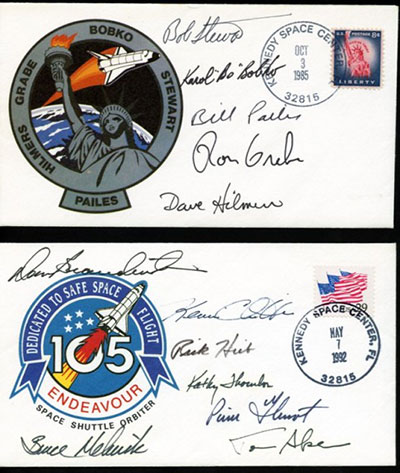 HILMERS GRABE BOBKO STEWART
PAILES
Bob Stewart
Karol "Bo" Bobko
Bill Pailes
Ron Grabe
Dave Hilmers
KENNEDY SPACE CENTER
OCT
3
1985
32815
U.S. POSTAGE 8¢
LIBERTY
Dan Brandenstein
DEDICATED TO SAFE SPACE FLIGHT
105
ENDEAVOUR
SPACE SHUTTLE ORBITER
Rick Hieb
Kathy Thornton
Pierre Thuot
Tom Akers
Bruce Melnick
KENNEDY SPACE CENTER, FL
MAY
7
1992
32815